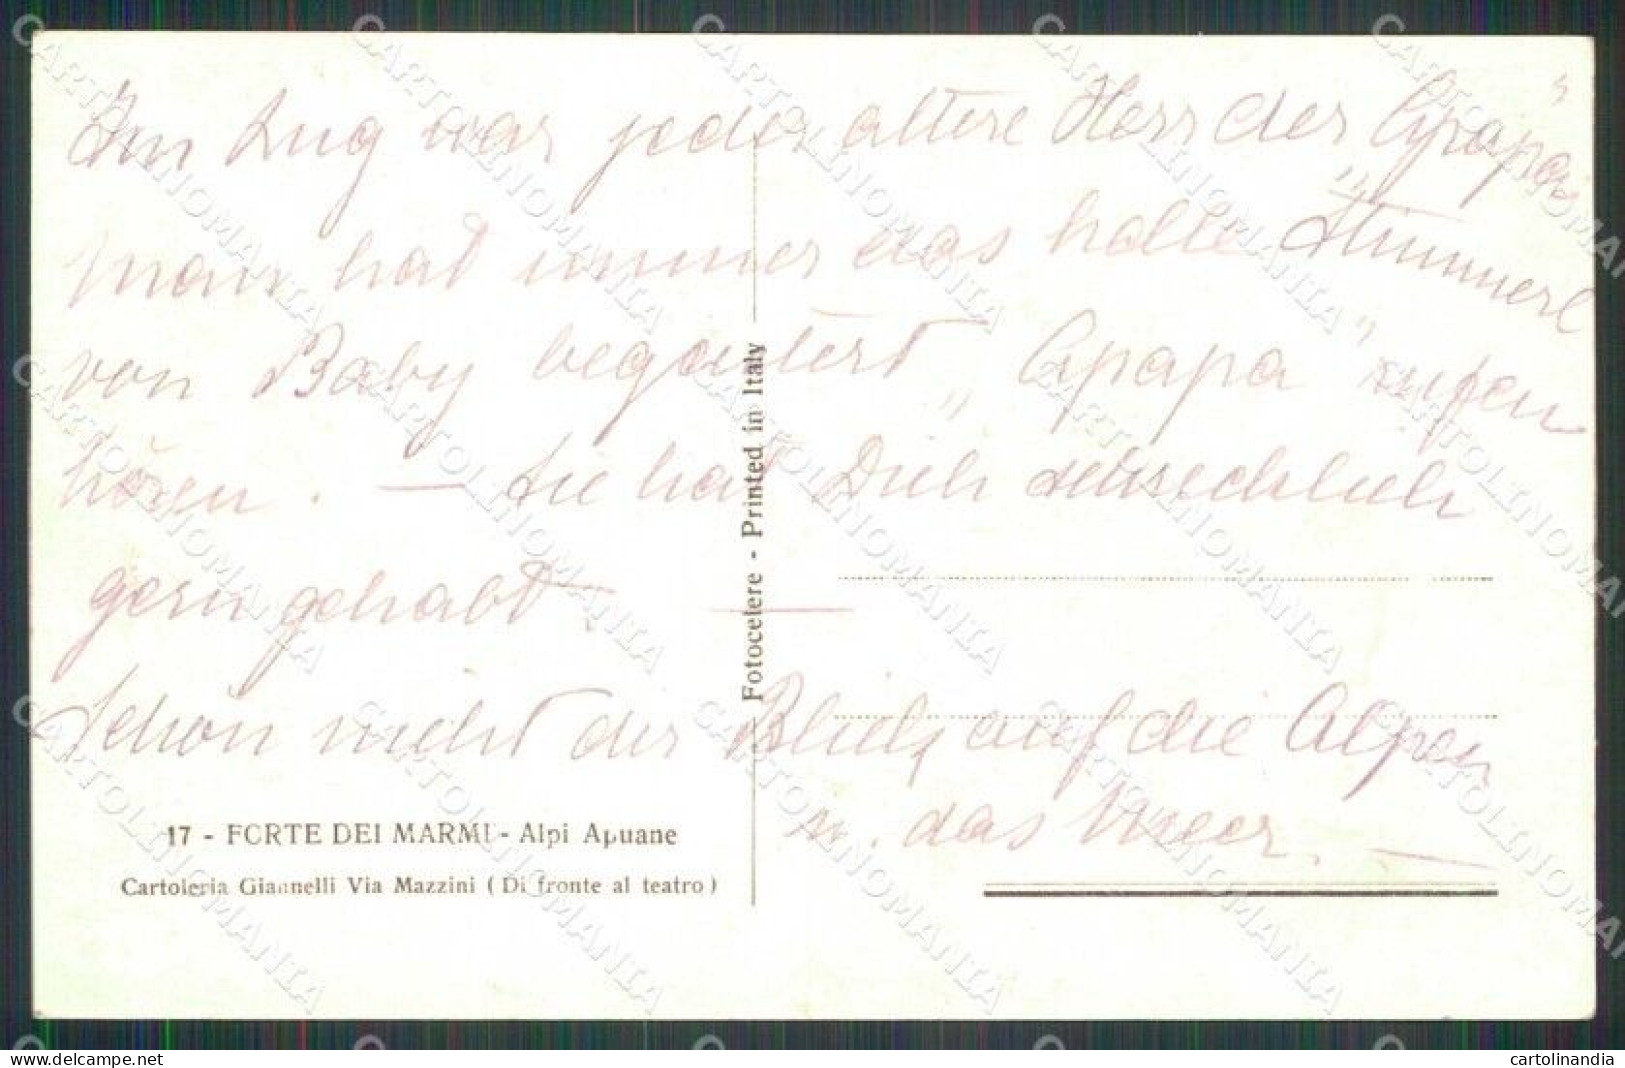 Im Zug war jeder ältere Herr der „Apapa“
man hat immer das helle „Stimmerl“
von Baby begeistert „Apapa“ rufen
hören. — Sie hat Dich schrecklich
gern gehabt. —
Schön nicht der Blick auf die Alpen
u. das Meer. —
17 - FORTE DEI MARMI - Alpi Apuane
Cartoleria Giannelli Via Mazzini ( Di fronte al teatro )
Fotocelere - Printed in Italy
CARTOLINOMANIA
www.delcampe.net
cartolinandia